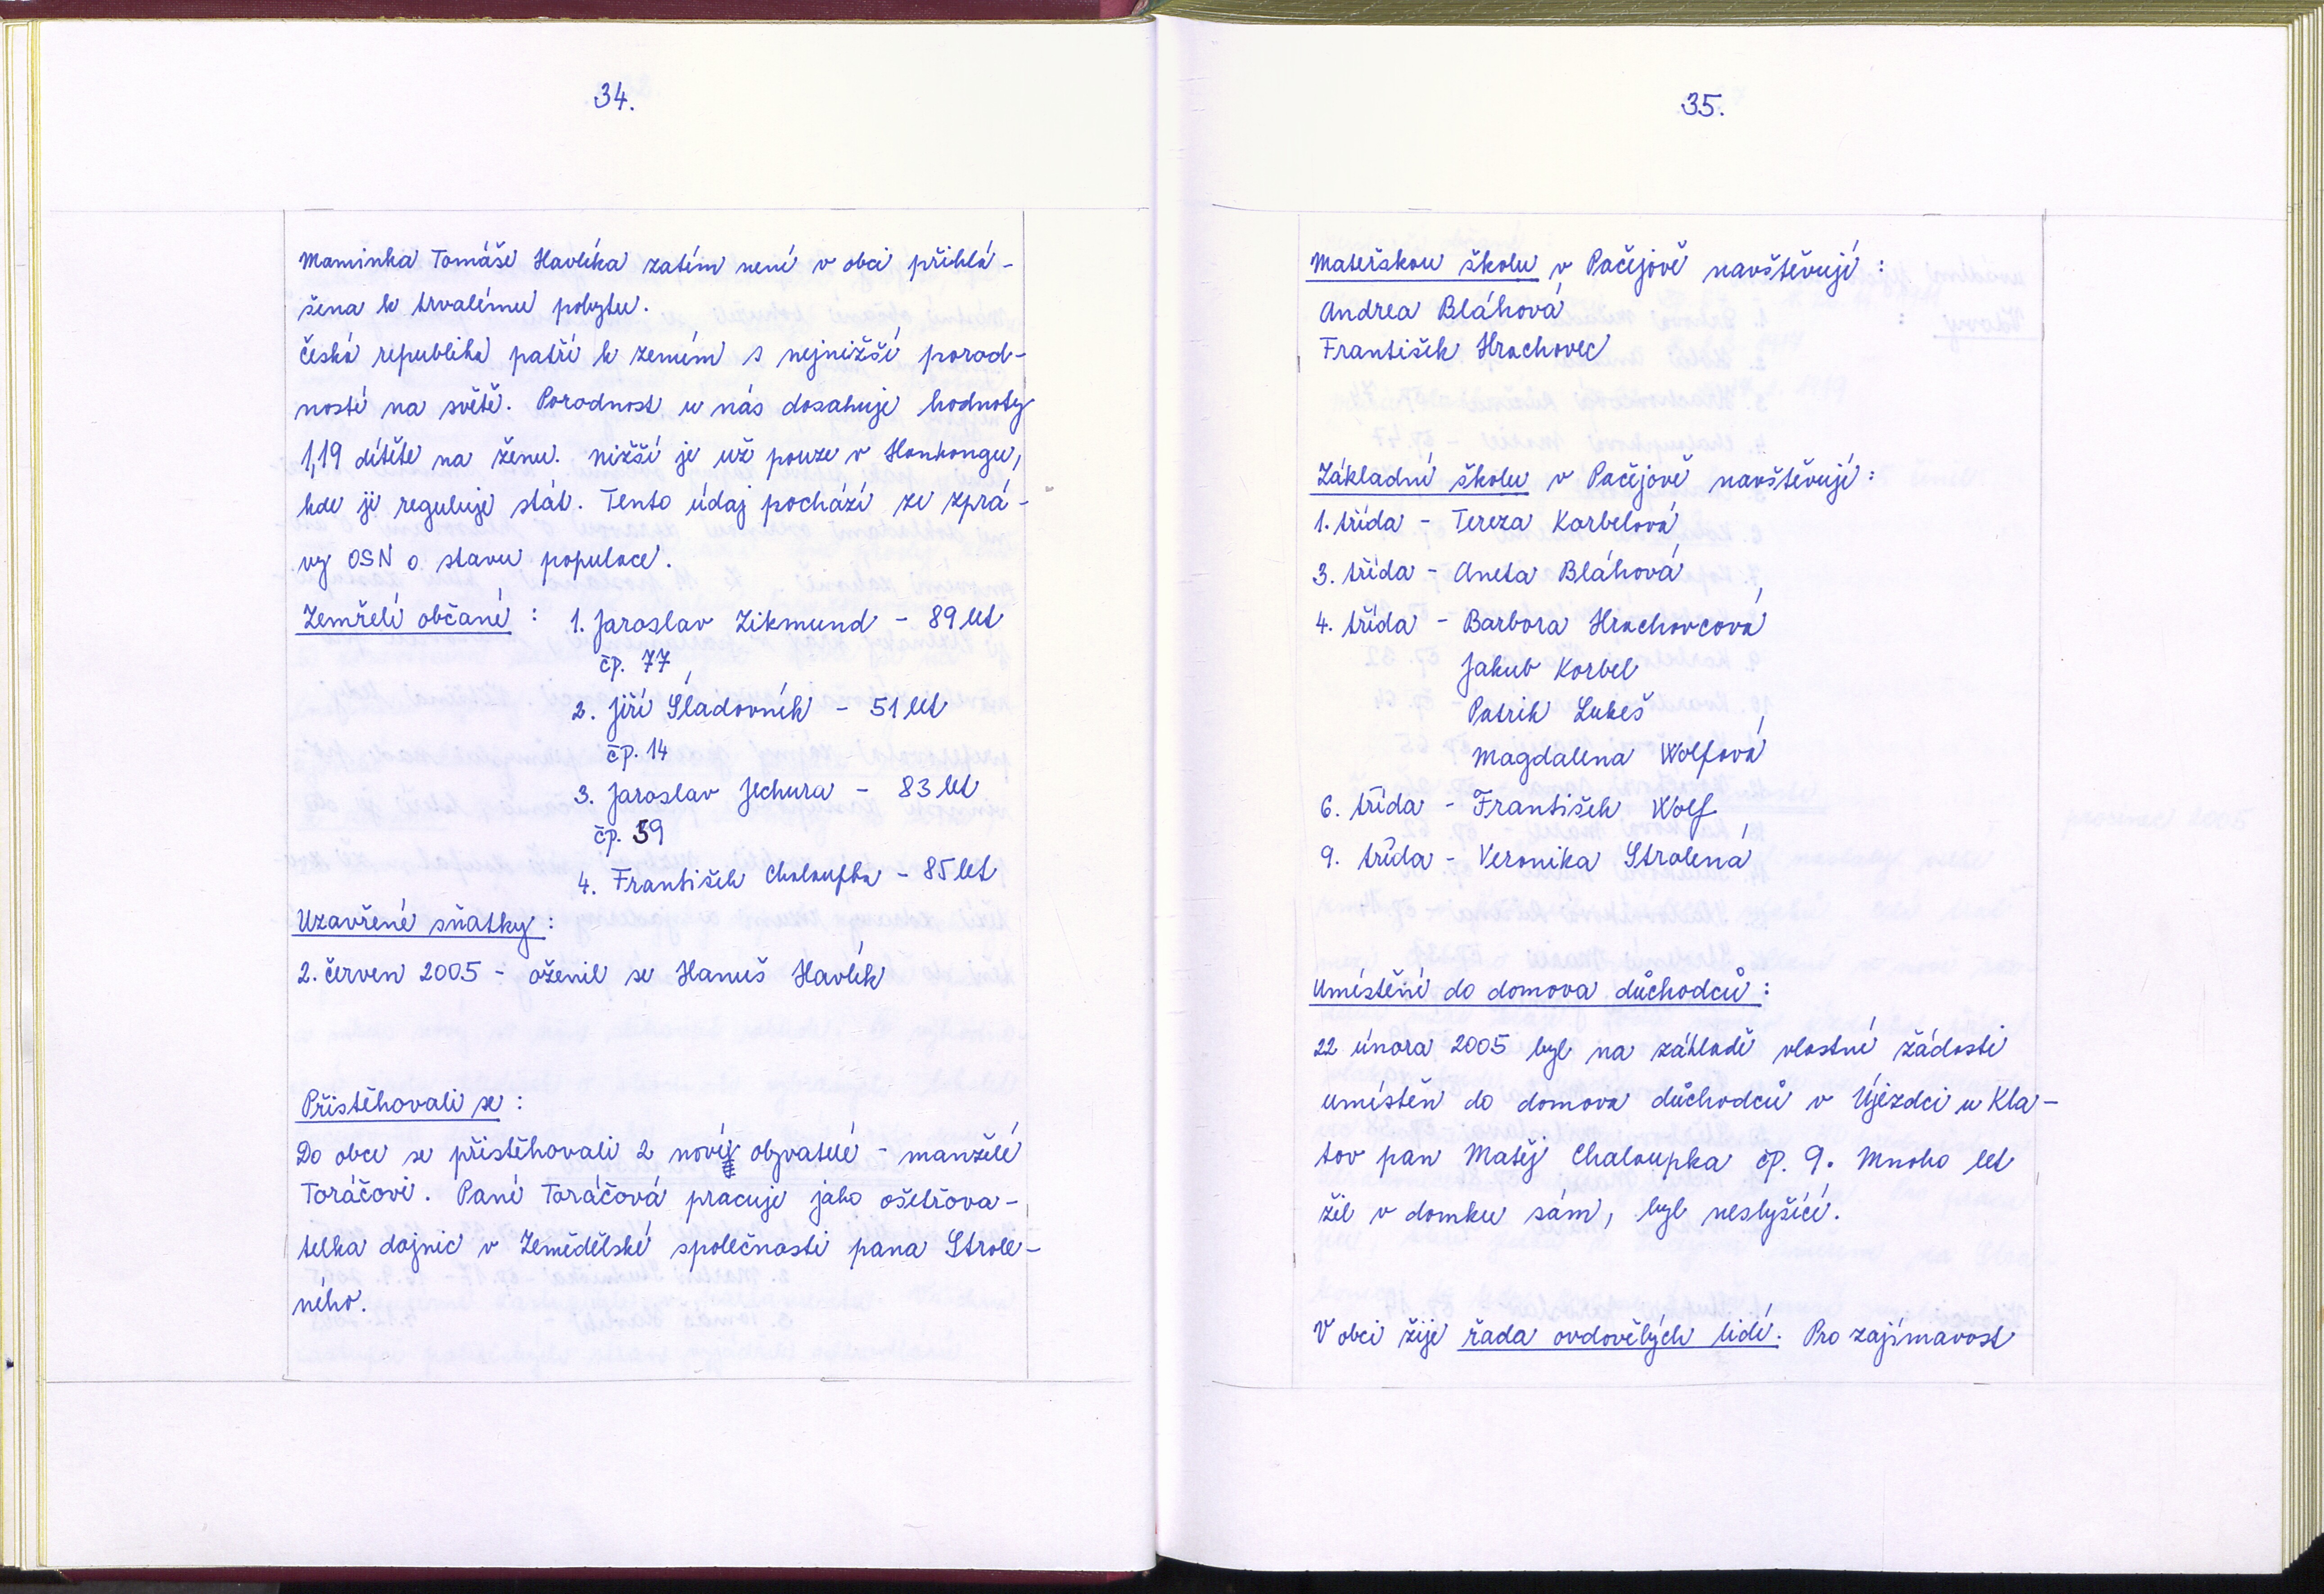 34.
Maminka Tomáše Havlíka zatím není v obci přihlá-
šena k trvalému pobytu.
Česká republika patří k zemím s nejnižší porod-
ností na světě. Porodnost u nás dosahuje hodnoty
1,19 dítěte na ženu. Nižší je už pouze v Honkongu,
kde ji reguluje stát. Tento údaj pochází ze zprá-
vy OSN o stavu populace.
Zemřelí občané : 1. Jaroslav Zikmund - 89 let
čp. 77
2. Jiří Sladovník - 51 let
čp. 14
3. Jaroslav Jechura - 83 let
čp. 39
4. František Chaloupka - 85 let
Uzavřené sňatky :
2. červen 2005 - oženil se Hanuš Havlík
Přistěhovali se :
Do obce se přistěhovali 2 noví obyvatelé - manželé
Toráčovi. Paní Toráčová pracuje jako ošetřova-
telka dojnic v Zemědělské společnosti pana Strole-
ného.
35.
Mateřskou školu v Pačejově navštěvují :
Andrea Bláhová
František Hrachovec
Základní školu v Pačejově navštěvují :
1. třída - Tereza Korbelová
3. třída - Aneta Bláhová
4. třída - Barbora Hrachovcová
Jakub Korbel
Patrik Lukeš
Magdalena Wolfová
6. třída - František Wolf
9. třída - Veronika Strolená
Umístění do domova důchodců :
22 února 2005 byl na základě vlastní žádosti
umístěn do domova důchodců v Újezdci u Kla-
tov pan Matěj Chaloupka čp. 9. Mnoho let
žil v domku sám, byl neslyšící.
V obci žije řada ovdovělých lidí. Pro zajímavost